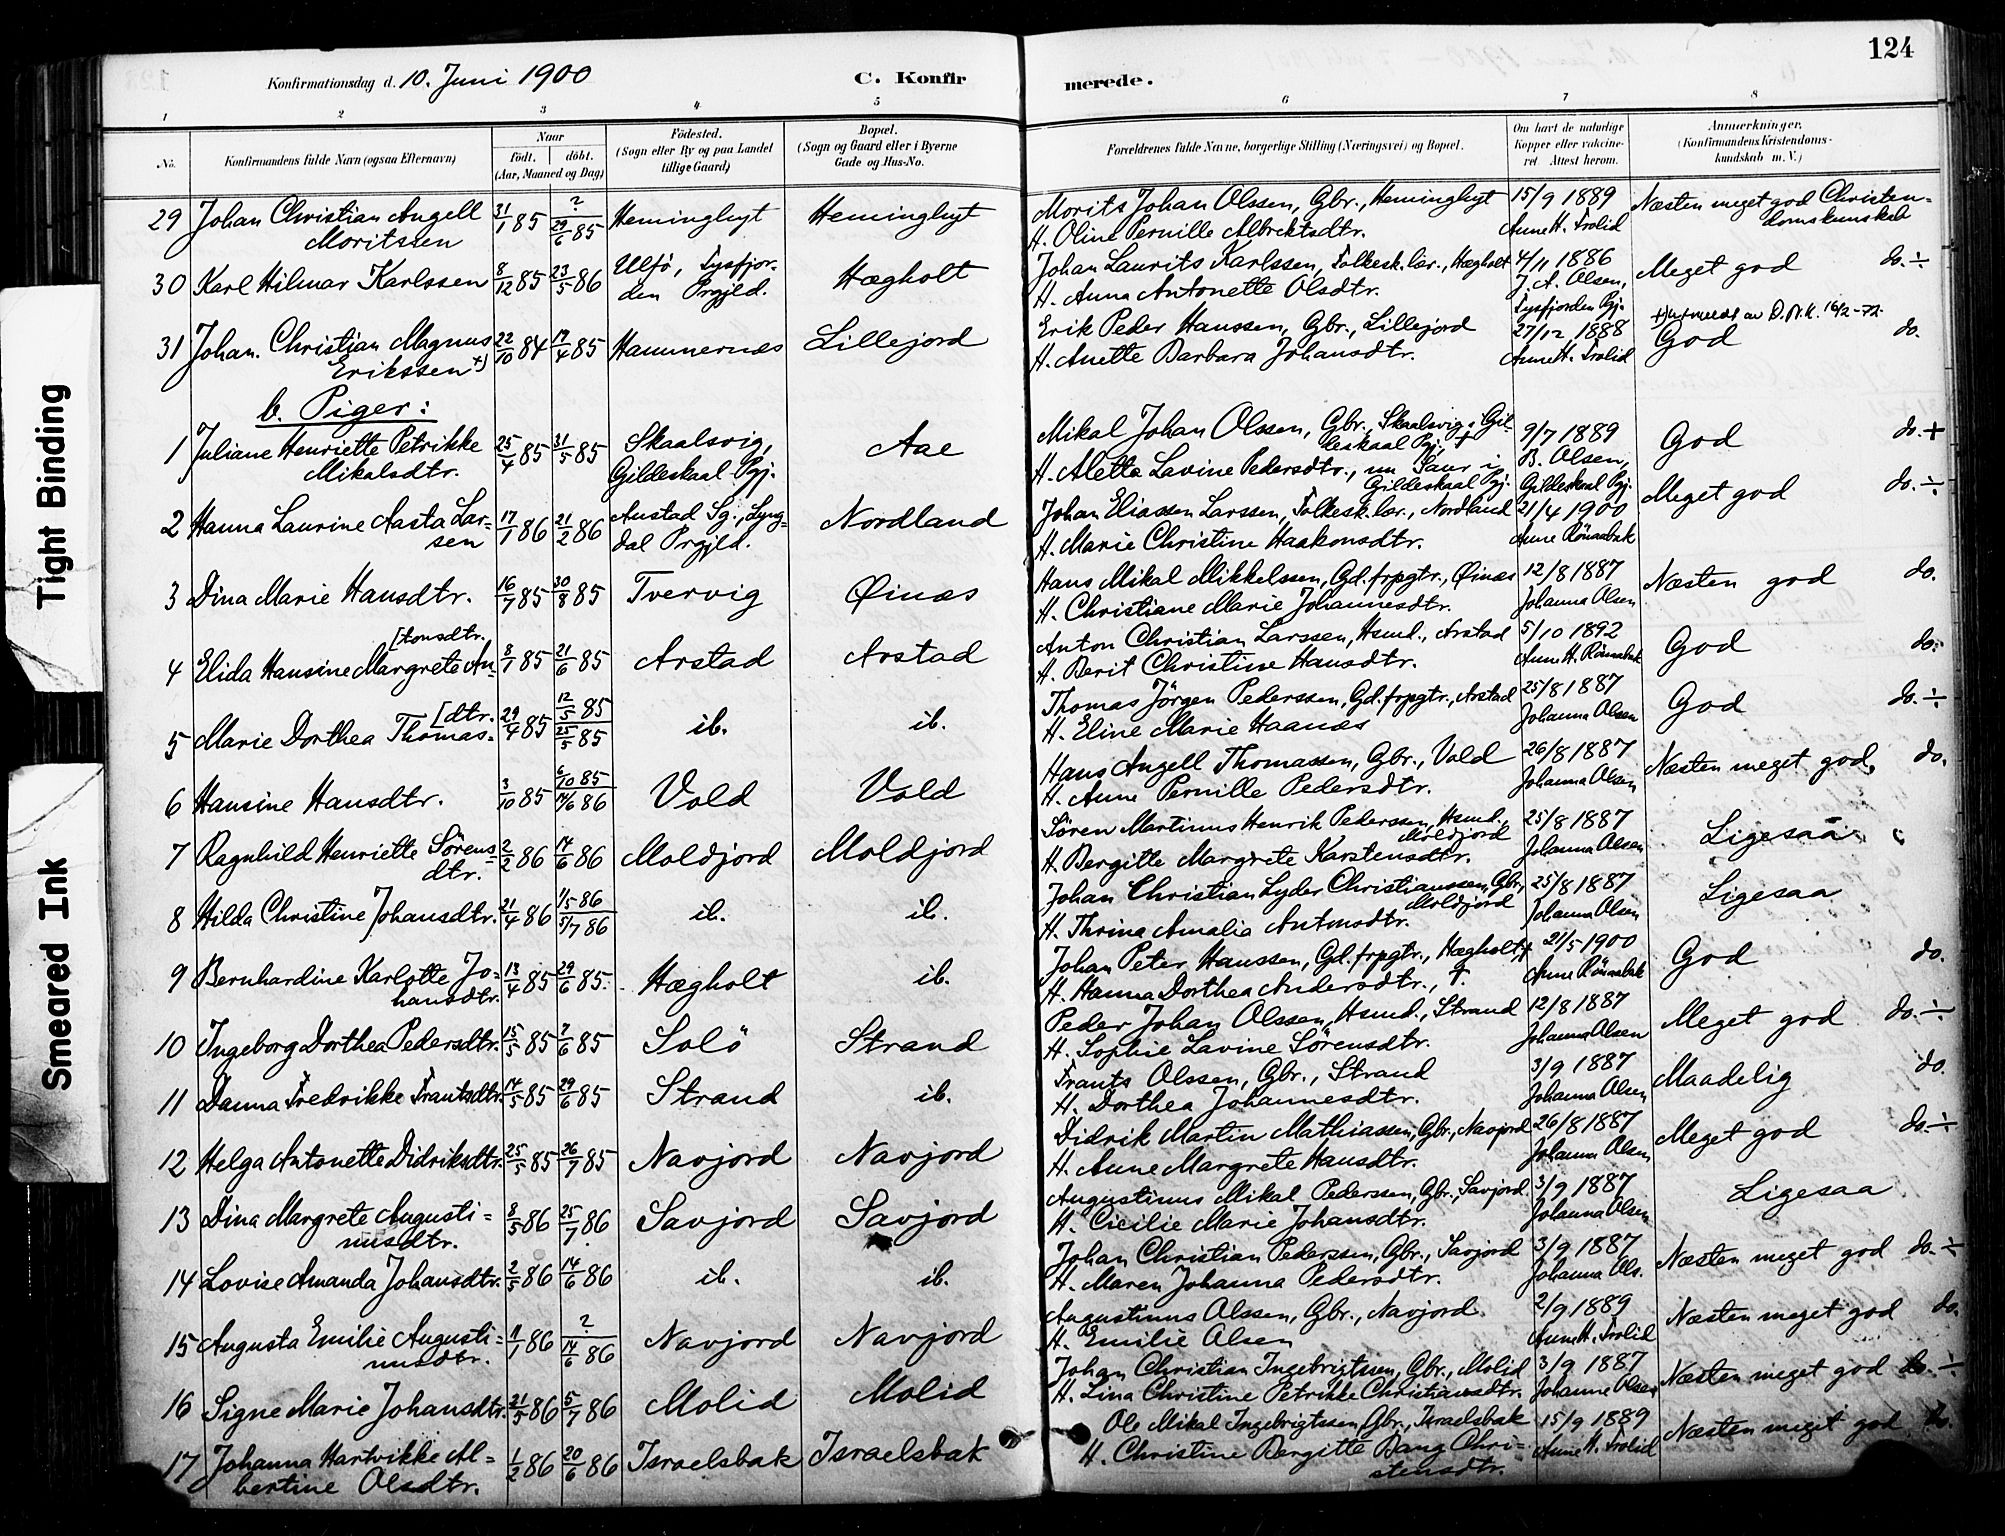 124
Konfirmationsdag d. 10. Juni 1900
C. Konfir
merede.
1 2 3 4 5 6 7 8
No.
Konfirmandens fulde Navn (ogsaa Efternavn)
Naar
födt. döbt.
(Aar, Maaned og Dag)
Födested.
(Sogn eller By og paa Landet
tillige Gaard)
Bopæl.
(Sogn og Gaard eller i Byerne
Gade og Hus-No.
Forældrenes fulde Navne, borgerlige Stilling (Næringsvei) og Bopæl.
Om havt de naturlige
Kopper eller vakcine-
ret Attest herom.
Anmerkninger.
(Konfirmandens Kristendoms-
kundskab m. V.)
29 Johan Christian Angell
Moritssen
31/1 85 ? 29/6 85 Heminghyt Heminghyt
Morits Johan Olssen, Gbr., Heminghyt
H. Oline Pernille Albrektsdtr.
15/9 1889
Anne H. Trolid
Næsten meget god Christen-
domskunskab
30 Karl Hilmar Karlssen 8/12 85 23/5 86
Ulfö, Tysfjor-
den Prgjld.
Hægholt
Johan Laurits Karlssen, Folkesk.lær., Hægholt
H. Anna Antonette Olsdtr.
4/11 1886
J. A. Olsen,
Tysfjorden Pgj.
Meget god do. ÷
31 Johan Christian Magnus
Erikssen +)
22/10 84 17/4 85 Hammernæs Lillejord
Erik Peder Hanssen, Gbr., Lillejord
H. Anette Barbara Johansdtr.
27/12 1888
Anne H. Trolid
God do.
b. Piger:
1 Juliane Henriette Petrikke
Mikalsdtr.
25/4 85 31/5 85
Skaalsvig,
Gildeskaal Pgj.
Aae
Mikal Johan Olssen, Gbr., Skaalsvig i Gil-
deskaal Pgj. +
H. Aletta Lavine Pedersdtr., nu Saur i
Gildeskaal Pgj.
9/7 1889
B. Olsen,
Gildeskaal Pgj.
God do. +
2 Hanna Laurine Aasta Lar-
sen
17/1 86 21/2 86
Austad Sg., Lyng-
dal Prgjld.
Nordland
Johan Eliassen Larssen, Folkesk.lær., Nordland
H. Marie Christine Haakonsdtr.
21/4 1900
Anne Rönaabak
Meget god do. ÷
3 Dina Marie Hansdtr. 16/7 85 30/8 85 Tvervig Øinæs
Hans Mikal Mikkelssen, Gd.frpgtr., Øinæs
H. Christiane Marie Johannesdtr.
12/8 1887
Johanna Olsen
Næsten god do.
[tonsdtr.
4 Elida Hansine Margrete An- 8/1 85 21/6 85 Arstad Arstad
Anton Christian Larssen, Hsmd., Arstad
H. Berit Christine Hansdtr.
5/10 1892
Anne H. Rönaabak
God do.
[dtr.
5 Marie Dorthea Thomas- 29/4 85 12/5 85 25/5 85 ib. ib.
Thomas Jörgen Pederssen, Gd.frpgtr., Arstad
H. Eline Marie Haanæs
25/8 1887
Johanna Olsen
God do. ÷
6 Hansine Hansdtr. 3/10 85 6/10 85 14/6 86 Vold Vold
Hans Angell Thomassen, Gbr., Vold
H. Anne Pernille Pedersdtr.
26/8 1887
Johanna Olsen
Næsten meget god, do.
7 Ragnhild Henriette Sörens-
dtr.
2/2 86 14/6 86 Moldjord Moldjord
Sören Martinus Henrik Pederssen, Hsmd.,
Moldjord
H. Bergitte Margrete Karstensdtr.
25/8 1887
Johanna Olsen
Ligesaa
8 Hilda Christine Johansdtr. 21/4 86 1/5 86 5/7 86 ib. ib.
Johan Christian Lyder Christianssen, Gbr.,
Moldjord
H. Thrina Amalia Antonsdtr.
25/8 1887
Johanna Olsen
Ligesaa
9 Bernhardine Karlotte Jo-
hansdtr.
13/4 85 29/6 85. Hægholt ib.
Johan Peter Hanssen, Gd.frpgtr., Hægholt, +
H. Hanna Dorthea Andersdtr., +.
21/5 1900
Anne Rönaabak
God do.
10 Ingeborg Dorthea Pedersdtr. 15/5 85 7/6 85 Solö Strand
Peder Johan Olssen, Hsmd., Strand
H. Sophie Lavine Sörensdtr.
12/8 1887
Johanna Olsen
Meget god do. ÷
11 Danna Fredrikke Frantsdtr. 14/5 85 29/6 85 Strand ib.
Frants Olssen, Gbr., Strand
H. Dorthea Johannesdtr.
3/9 1887
Johanna Olsen
Maadelig do.
12 Helga Antonette Didriksdtr. 25/5 85 26/7 85 Navjord Navjord
Didrik Martin Mathiassen, Gbr., Navjord
H. Anne Margrete Hansdtr.
26/8 1887
Johanna Olsen
Meget god do. ÷
13 Dina Margrete Augusti-
nusdtr.
8/5 86 25/7 86 Savjord Savjord
Augustinus Mikal Pederssen, Gbr., Savjord
H. Cicilie Marie Johansdtr.
3/9 1887
Johanna Olsen
Ligesaa
14 Lovise Amanda Johansdtr. 2/5 86 14/6 86 ib. ib.
Johan Christian Pederssen, Gbr., Savjord
H. Maren Johanna Pedersdtr.
3/9 1887
Johanna Ols.
Næsten meget god do. ÷
15 Augusta Emilie Augusti-
nusdtr.
86 ? 14/6 86 Navjord Navjord
Augustinus Olssen, Gbr., Navjord
H. Emilie Olsen
2/9 1889
Anne H. Trolid
Næsten meget god do.
16 Signe Marie Johansdtr. 21/5 86 5/7 86 Molid Molid
Johan Christian Ingebrigtssen, Gbr., Molid
H. Lina Christine Petrikke Christiansdtr.
3/9 1887
Johanne Olsen
Næsten meget god do. ÷
17 Johanna Hartvikke Al-
bertine Olsdtr.
1/2 86 20/6 86 Israelsbak Israelsbak
Ole Mikal Ingebrigtssen, Gbr., Israelsbak
H. Christine Bergitte Bang Chri-
stensdtr.
15/9 1889
Anne H. Trolid
Næsten meget god do.
Tight Binding
Smeared Ink